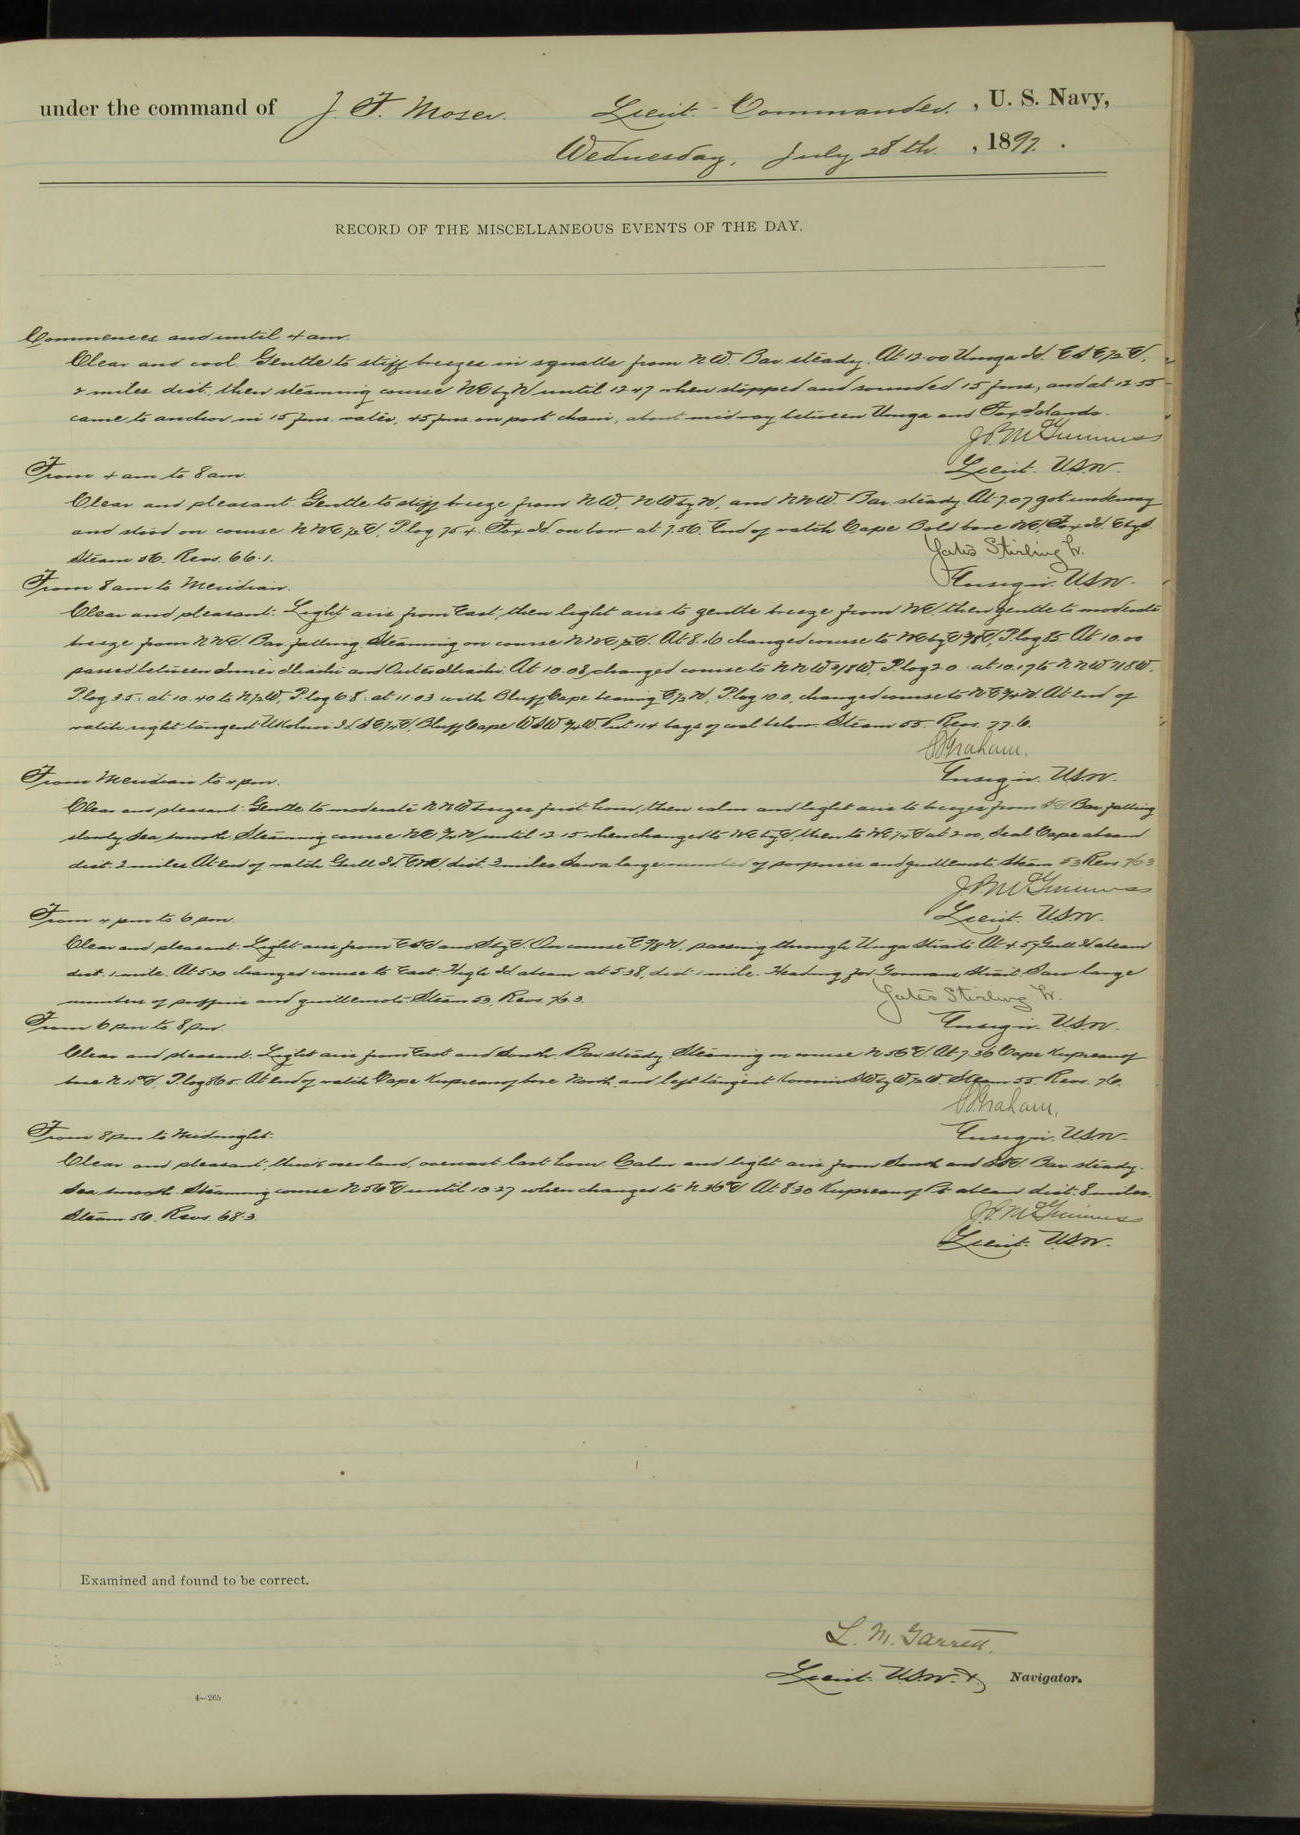 under the command of J. F. Moser. Lieut-Commander. , U. S. Navy,
Wednesday, July 28th , 1897.
RECORD OF THE MISCELLANEOUS EVENTS OF THE DAY.
Commences and until 4 am.
Clear and cool. Gentle to stiff breezes in squalls from NW. Bar. steady. At 12.00 Unga Id. ESE½E,
2 miles dist. then steaming course NE by N until 12.47 when stopped and sounded 15 fms, and at 12.55
came to anchor in 15 fms. water, 45 fms. on port chain, about midway between Unga and Fox Islands.
Lieut. USN.
From 4 am to 8 am.
Clear and pleasant. Gentle to stiff breeze from NW, NW by N, and NNW. Bar. steady. At 7.07 got underway
and stood on course NNE½E, P. log 75.4. Fox Id. on bow at 7.50. End of watch Cape Bold bore NE, Fox Id. E by S.
Steam 56. Revs. 66.1.
Yates Stirling Jr.
Ensign. USN.
From 8 am to Meridian.
Clear and pleasant. Light airs from East, then light airs to gentle breeze from NE, then gentle to moderate
breeze from NNE. Bar. falling. Steaming on course NNE½E. At 8.10 changed course to P. log 85. At 10.00
passed between Inner Iliasik and Outer Iliasik. At 10.08, changed course to NNW⅜W, P. log 2.0. at 10.17 to NNW⅞W.
P. log 3.5. at 10.40 to N½W, P. log 6.8. at 11.03 with Bluff Cape bearing E½N, P. log 10.0, changed course to NE¾N. At end of
watch right tangent Ukolnoi Id. SE¼E, Bluff Cape WSW¾W. Put 114 bags of coal below. Steam 55. Revs. 77.6.
Graham.
Ensign. USN.
From Meridian to 4 pm.
Clear and pleasant. Gentle to moderate NNW breezes first hour, then calm and light airs to breezes from SE. Bar. falling
slowly. Sea smooth. Steaming course NE¾N until 12.15 when changed to NE by E, then to NE¼E at 2.00, Seal Cape abeam
dist. 2 miles. At end of watch Gull Id. dist. 3 miles. Saw a large number of porpoises and guillemots. Steam 53 Revs 76.3
Lieut. USN.
From 4 pm to 6 pm.
Clear and pleasant. Light airs from ESE and S by E. On course E⅞N, passing through Unga Straits. At 4.57 Gull Id abeam
dist. 1 mile. At 5.20 changed course to East. High Id. abeam at 5.38, dist. 1 mile. Heading for Gorman Strait. Saw large
number of puffins and guillemots. Steam 53, Revs. 76.3.
Yates Stirling Jr.
Ensign. USN.
From 6 pm to 8 pm.
Clear and pleasant. Light airs from East and South. Bar steady. Steaming on course N56°E. At 7.36 Cape Kupreanof
bore N11°E, P. log 86.5. At end of watch Cape Kupreanof bore North, and left tangent W½W. Steam 55. Revs. 76.
Graham.
Ensign. USN.
From 8 pm to Midnight.
Clear and pleasant, thick over land, overcast last hour. Calm and light airs from South and SSE. Bar. steady.
Sea smooth. Steaming course N56°E until 10.27 when changed to N36°E. At 8.30 Kupreanof Pt. abeam dist. 8 miles.
Steam 56. Revs. 68.3.
Lieut. USN.
Examined and found to be correct.
L. M. Garrett.
Lieut. USN. & Navigator.
4—265